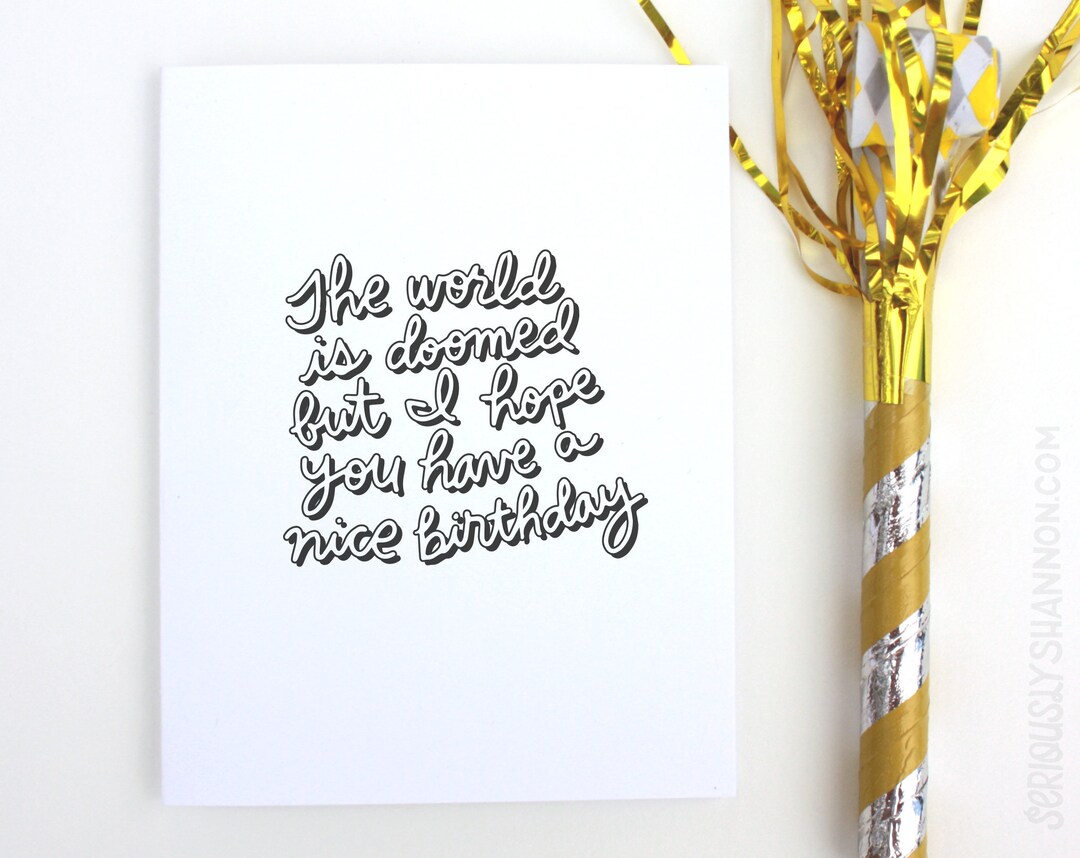 The world
is doomed
but I hope
you have a
nice birthday
SERIOUSLYSHANNON.COM